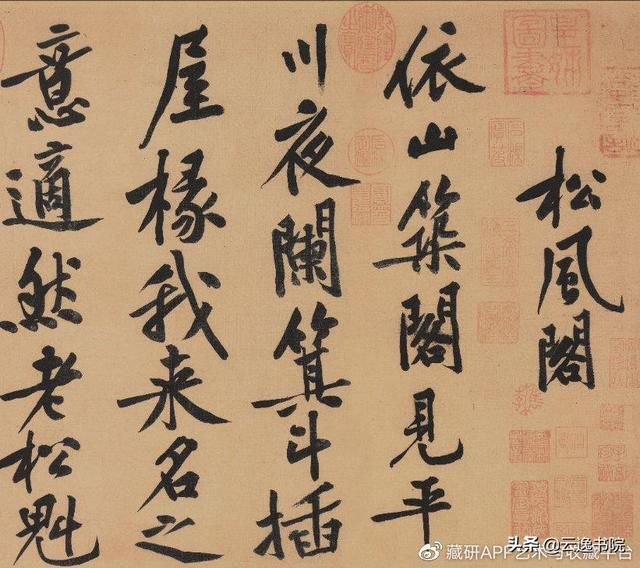 松風閣
依山築閣見平
川夜闌箕斗插
屋椽我来名之
意適然老松魁
藏研APP艺术与收藏平台
头条@云逸书院